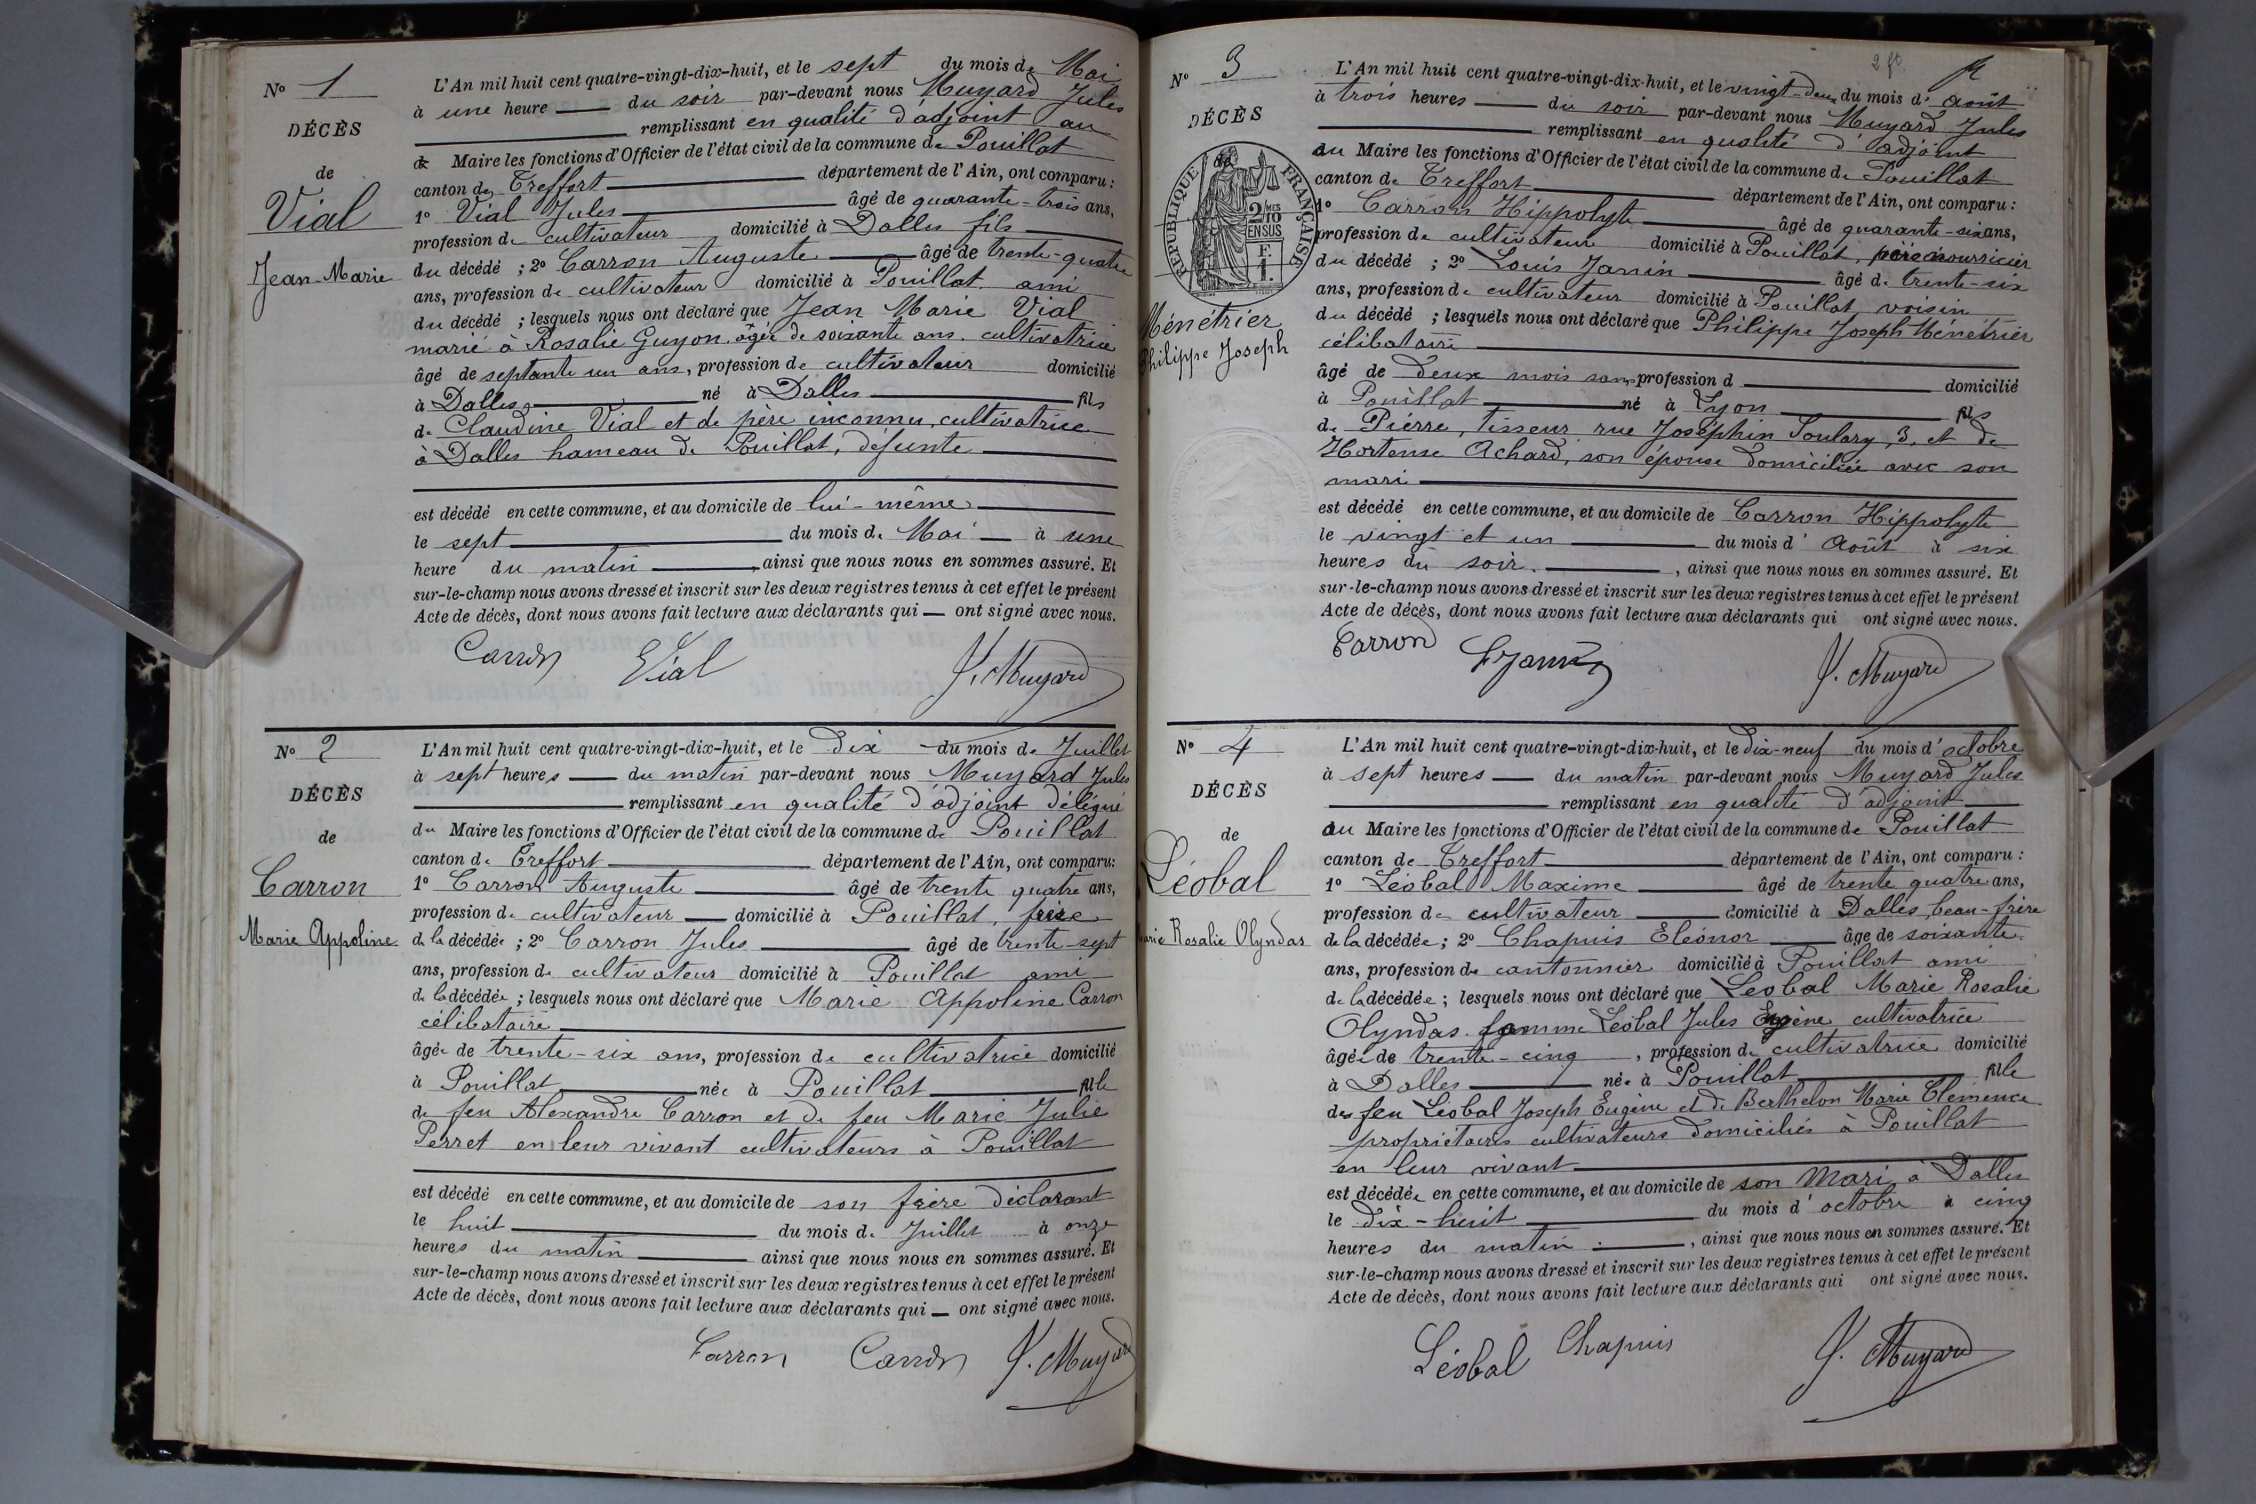 N° 1
DÉCÈS
de
Vial
Jean-Marie
L'An mil huit cent quatre-vingt-dix-huit, et le sept du mois de Mai
à une heure du soir par-devant nous Muyard Jules
remplissant en qualité d'adjoint au
Maire les fonctions d'Officier de l'état civil de la commune de Pouillat
canton de Treffort département de l'Ain, ont comparu :
1° Vial Jules âgé de quarante-trois ans,
profession de cultivateur domicilié à Dalles fils
du décédé ; 2° Carron Auguste âgé de trente-quatre
ans, profession de cultivateur domicilié à Pouillat ami
du décédé ; lesquels nous ont déclaré que Jean Marie Vial
marié à Rosalie Guyon âgée de soixante ans cultivatrice
âgé de septante un ans, profession de cultivateur domicilié
à Dalles né à Dalles fils
de Claudine Vial et de père inconnu, cultivatrice
à Dalles hameau de Pouillat, défunte
est décédé en cette commune, et au domicile de lui-même
le sept du mois de Mai à une
heure du matin, ainsi que nous nous en sommes assuré. Et
sur-le-champ nous avons dressé et inscrit sur les deux registres tenus à cet effet le présent
Acte de décès, dont nous avons fait lecture aux déclarants qui — ont signé avec nous.
Carron Vial J. Muyard
N° 2
DÉCÈS
de
Carron
Marie Appoline
L'An mil huit cent quatre-vingt-dix-huit, et le dix du mois de Juillet
à sept heures du matin par-devant nous Muyard Jules
remplissant en qualité d'adjoint délégué
du Maire les fonctions d'Officier de l'état civil de la commune de Pouillat
canton de Treffort département de l'Ain, ont comparu:
1° Carron Auguste âgé de trente quatre ans,
profession de cultivateur domicilié à Pouillat, frère
de la décédée ; 2° Carron Jules âgé de trente-sept
ans, profession de cultivateur domicilié à Pouillat ami
de la décédée ; lesquels nous ont déclaré que Marie Appoline Carron
célibataire
âgée de trente-six ans, profession de cultivatrice domicilié
à Pouillat née à Pouillat fille
de feu Alexandre Carron et de feu Marie Julie
Perret en leur vivant cultivateurs à Pouillat
est décédé en cette commune, et au domicile de son frère déclarant
le huit du mois de Juillet à onze
heures du matin ainsi que nous nous en sommes assuré. Et
sur-le-champ nous avons dressé et inscrit sur les deux registres tenus à cet effet le présent
Acte de décès, dont nous avons fait lecture aux déclarants qui — ont signé avec nous.
Carron Carron J. Muyard
2 ft.
N° 3
DÉCÈS
de
RÉPUBLIQUE FRANÇAISE
2/10 MES
EN SUS
F.
1.
Ménétrier
Philippe Joseph
L'An mil huit cent quatre-vingt-dix-huit, et le vingt-deux du mois d'août
à trois heures du soir par-devant nous Muyard Jules
remplissant en qualité d'adjoint
au Maire les fonctions d'Officier de l'état civil de la commune de Pouillat
canton de Treffort département de l'Ain, ont comparu :
1° Carron Hippolyte âgé de quarante-six ans,
profession de cultivateur domicilié à Pouillat, père nourricier
du décédé ; 2° Louis Janin âgé de trente-six
ans, profession de cultivateur domicilié à Pouillat voisin
du décédé ; lesquels nous ont déclaré que Philippe Joseph Ménétrier
célibataire
âgé de deux mois sans profession d domicilié
à Pouillat né à Lyon fils
de Pierre, tisseur rue Joséphin Soulary, 3, et de
Hortense Achard, son épouse domiciliée avec son
mari
est décédé en cette commune, et au domicile de Carron Hippolyte
le vingt et un du mois d'Août à six
heures du soir, ainsi que nous nous en sommes assuré. Et
sur-le-champ nous avons dressé et inscrit sur les deux registres tenus à cet effet le présent
Acte de décès, dont nous avons fait lecture aux déclarants qui ont signé avec nous.
Carron L. Janin J. Muyard
N° 4
DÉCÈS
de
Léobal
Marie Rosalie Olyndas
L'An mil huit cent quatre-vingt-dix-huit, et le dix-neuf du mois d'octobre
à sept heures du matin par-devant nous Muyard Jules
remplissant en qualité d'adjoint
au Maire les fonctions d'Officier de l'état civil de la commune de Pouillat
canton de Treffort département de l'Ain, ont comparu :
1° Léobal Maxime âgé de trente quatre ans,
profession de cultivateur domicilié à Dalles, beau-frère
de la décédée ; 2° Chapuis Eléonor âgé de soixante
ans, profession de cantonnier domicilié à Pouillat ami
de la décédée ; lesquels nous ont déclaré que Léobal Marie Rosalie
Olyndas femme Léobal Jules Eugène cultivatrice
âgée de trente-cinq, profession de cultivatrice domicilié
à Dalles née à Pouillat fille
des feu Léobal Joseph Eugène et de Berthelon Marie Clémence
propriétaires cultivateurs domiciliés à Pouillat
en leur vivant
est décédée en cette commune, et au domicile de son Mari à Dalles
le dix-huit du mois d'octobre à cinq
heures du matin, ainsi que nous nous en sommes assuré. Et
sur-le-champ nous avons dressé et inscrit sur les deux registres tenus à cet effet le présent
Acte de décès, dont nous avons fait lecture aux déclarants qui ont signé avec nous.
Léobal Chapuis J. Muyard